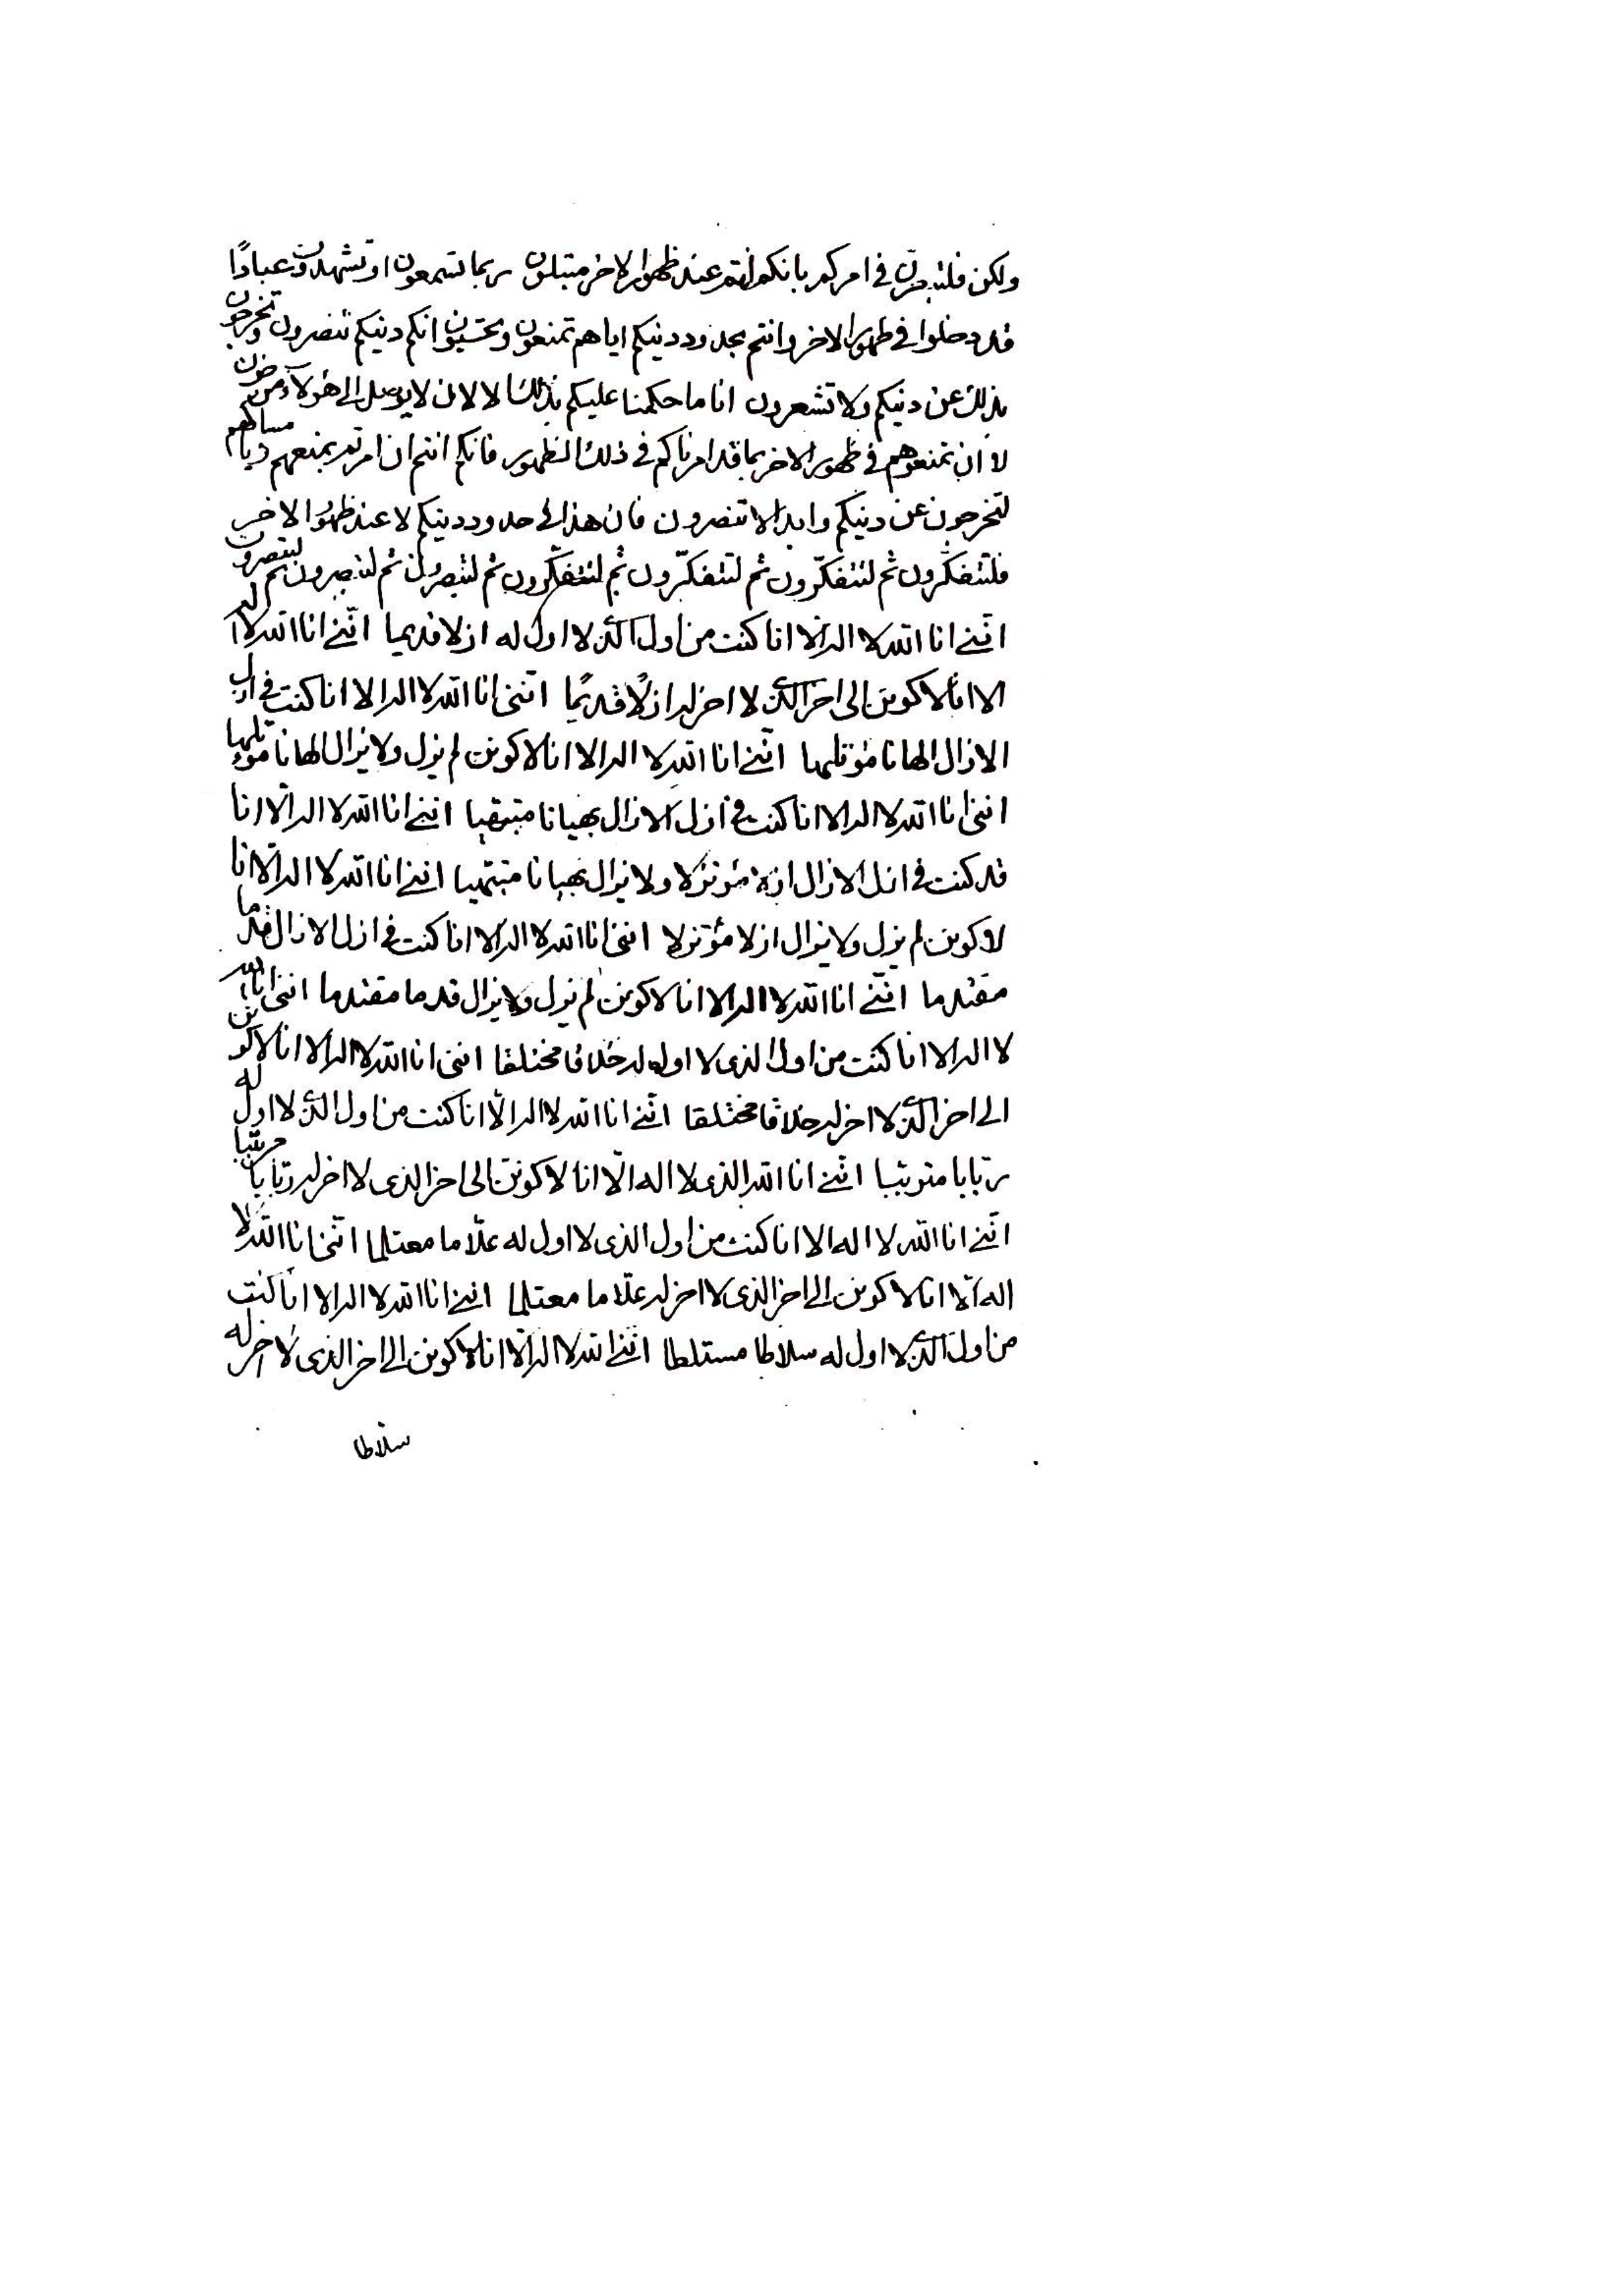 ولكن فلتبصرن في امركم بانكم انتم عند ظهور الاخر مبتلون ربما تسمعون او تشهدون عبادًا
قد دخلوا في ظهور الاخر وانتم بحدود دينكم اياهم تمنعون وتحسبون انكم دينكم تنصرون وتخرجون
بذلك عن دينكم ولا تشعرون انا ما حكمنا عليكم بذلك الا لان لا يوصل الى هؤلاء من حزن
لا ان تمنعوهم في ظهور الاخر بما قد امرناكم في ذلك الظهور فانكم انتم ان امرتم بمنعهم عن مسالكهم
لتخرجون عن دينكم وابدا لا تنصرون فان هذا في حدود دينكم لا عند ظهور الاخر
فلتتفكرون ثم لتتفكرون ثم لتتفكرون ثم لتتفكرون ثم لتبصرون ثم لتبصرون ثم لتبصرون
انني انا الله لا اله الا انا كنت من اول الذي لا اول له ازلا قديما انني انا الله لا اله
الا انا لاكونن الى اخر الذي لا اخر له ازلًا قديمًا انني انا الله لا اله الا انا كنت في ازل
الازال الهانا مؤتلها انني انا الله لا اله الا انا لاكونن لم يزل ولا يزال الهانا مؤتلها
انني انا الله لا اله الا انا كنت في ازل الازال بهيانا مبتهيا انني انا الله لا اله الا انا
قد كنت في ازل الازال ازلا مؤتزلا ولا يزال بهيانا مبتهيا انني انا الله لا اله الا انا
لاكونن لم يزل ولا يزال ازلا مؤتزلا انني انا الله لا اله الا انا كنت في ازل الازال قدما
مقتدما انني انا الله لا اله الا انا لاكونن لم يزل ولا يزال قدما مقتدما انني انا الله
لا اله الا انا كنت من اول الذي لا اول له خلاقا مختلقا انني انا الله لا اله الا انا لاكونن
الى اخر الذي لا اخر له خلاقا مختلقا انني انا الله لا اله الا انا كنت من اول الذي لا اول له
ربابا مرتببا انني انا الله الذي لا اله الا انا لاكونن الى اخر الذي لا اخر له ربابا مرتببا
انني انا الله لا اله الا انا كنت من اول الذي لا اول له علاما معتلما انني انا الله لا
اله الا انا لاكونن الى اخر الذي لا اخر له علاما معتلما انني انا الله لا اله الا انا كنت
من اول الذي لا اول له سلاطا مستلطا انني الله لا اله الا انا لاكونن الى اخر الذي لا اخر له
سلاطا